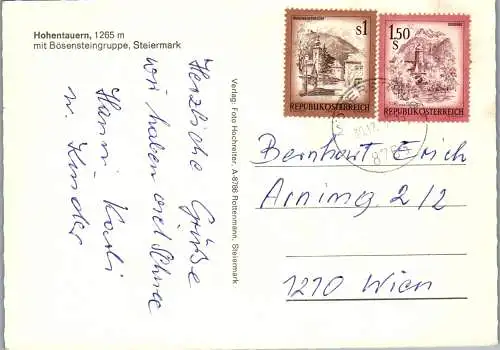 Hohentauern, 1265 m
mit Bösensteingruppe, Steiermark
Herzliche Grüße
wir haben viel Schnee
Hanni, Karli
u. Kinder
Verlag: Foto Hochreiter, A-8786 Rottenmann, Steiermark
S1
REPUBLIK ÖSTERREICH
1.50
S
REPUBLIK ÖSTERREICH
Bernhart Erich
Arning. 2/2
1210 Wien